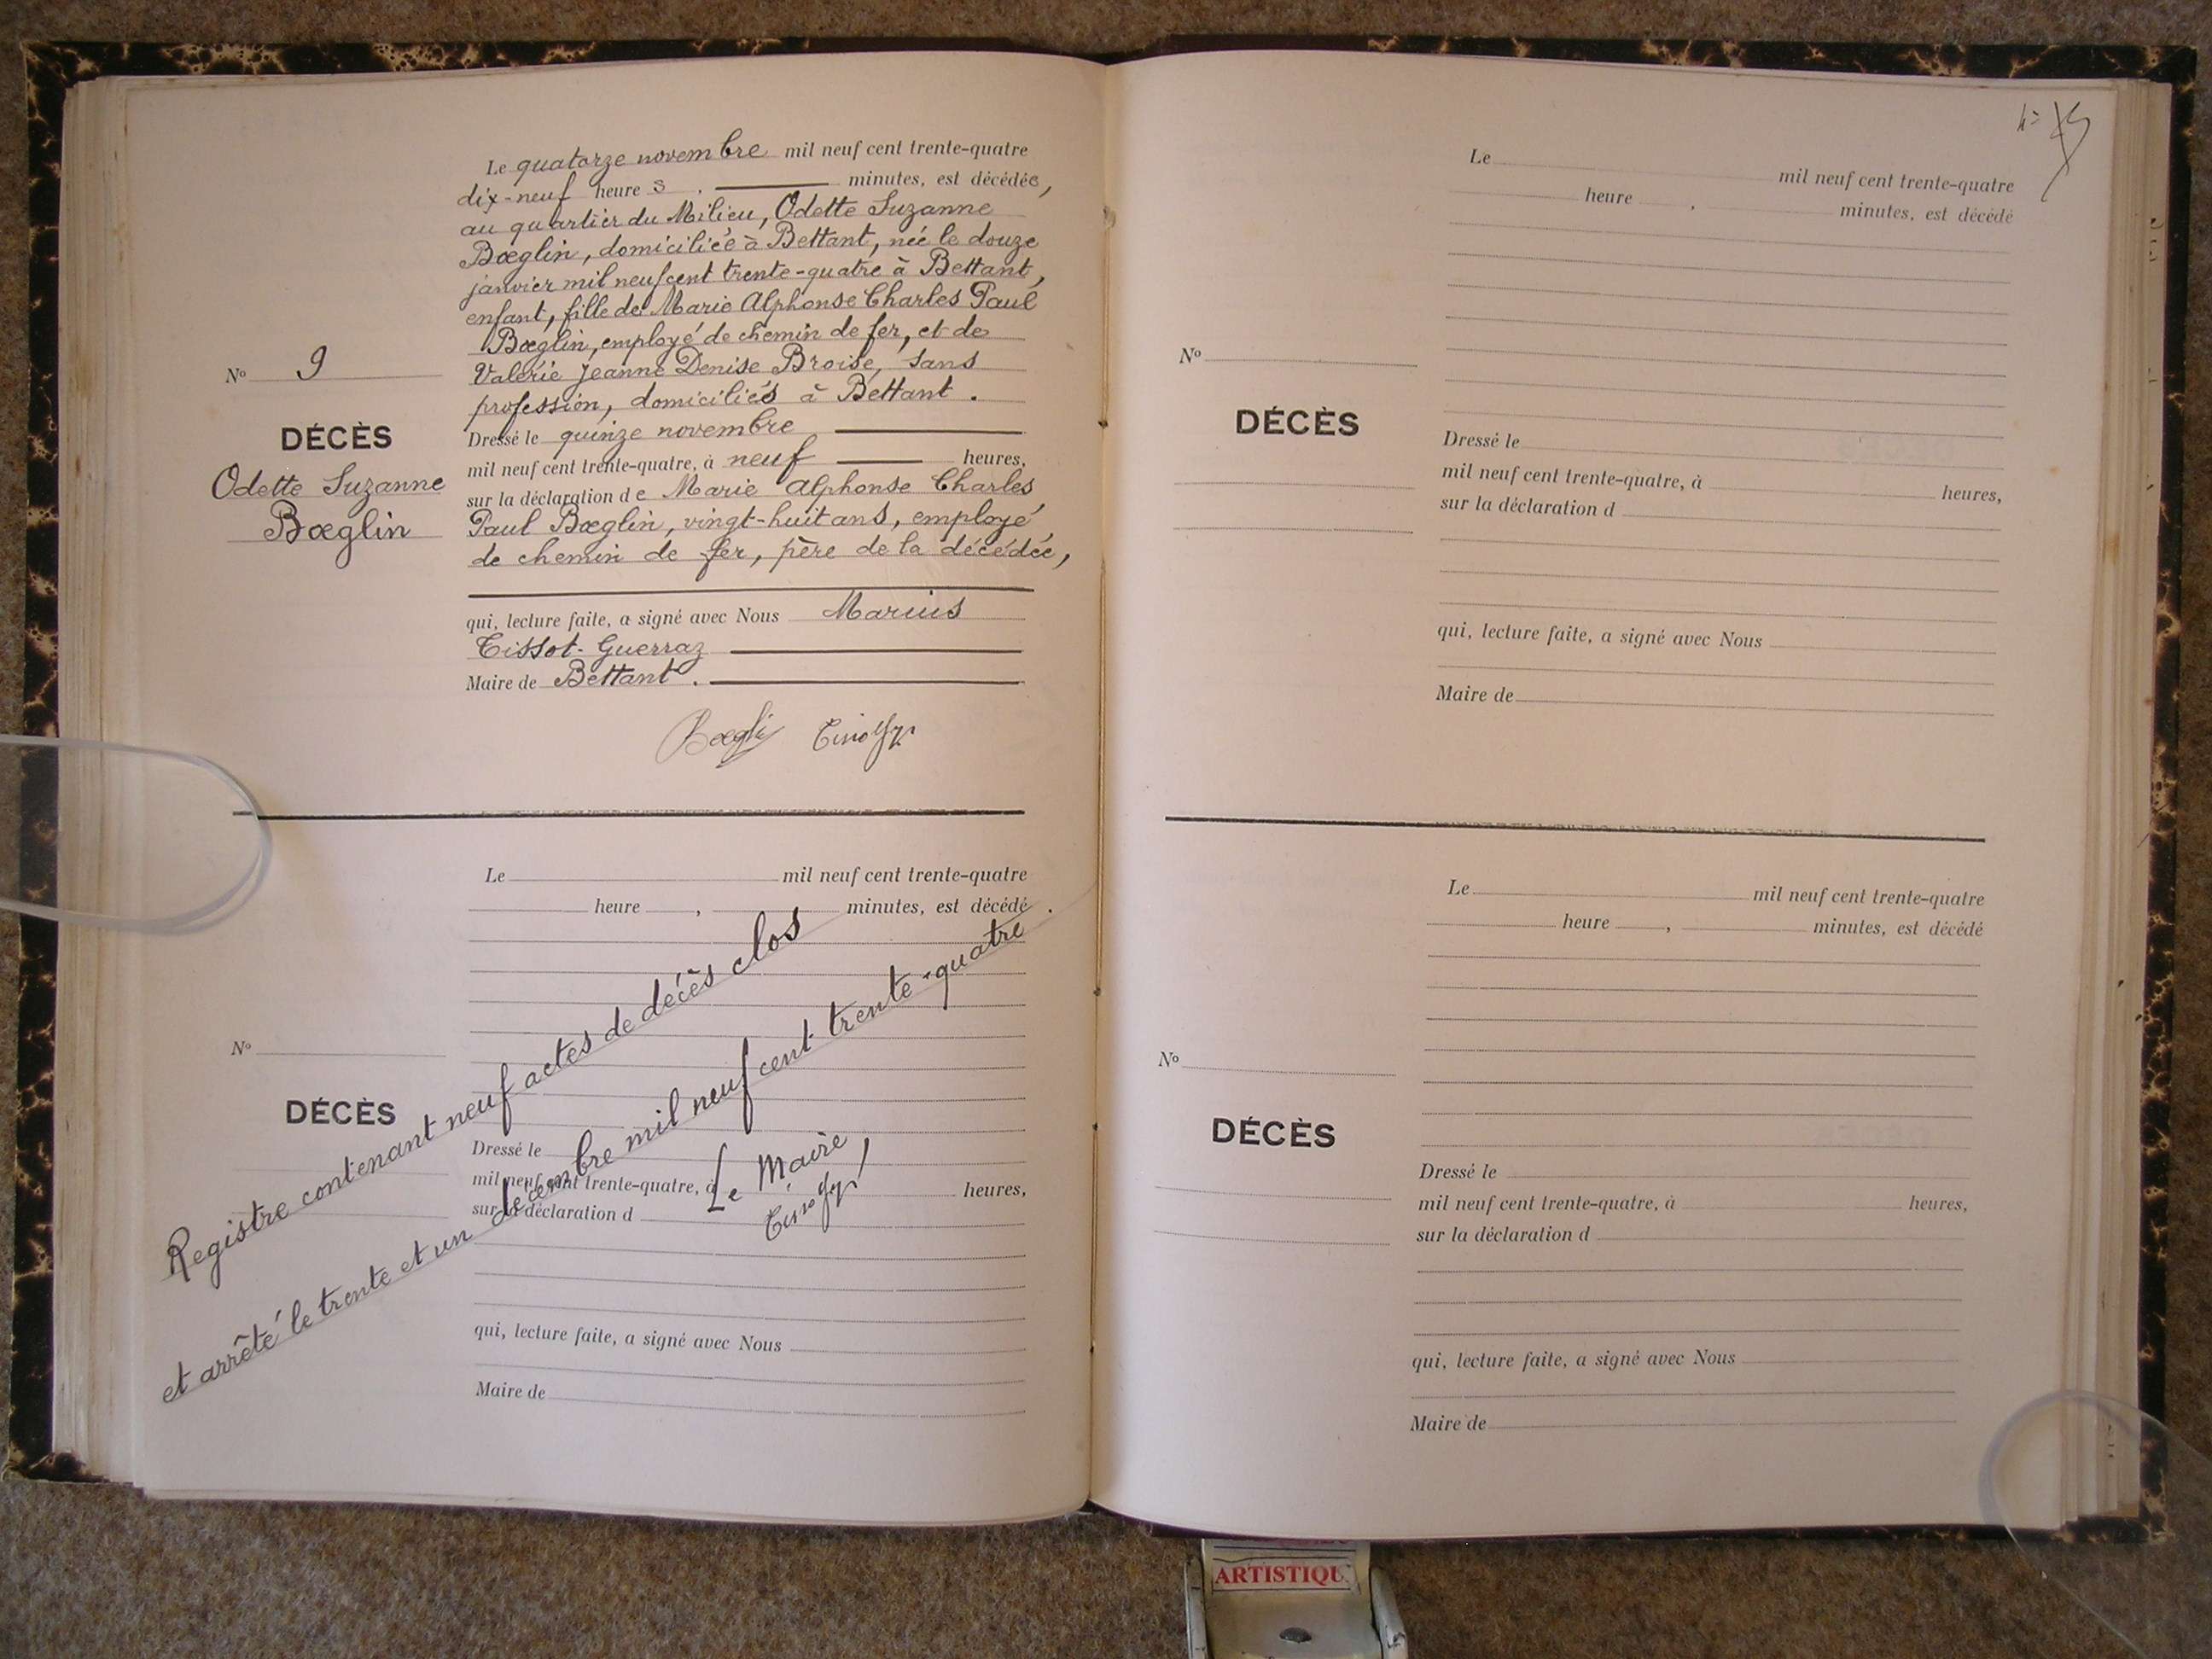 Le quatorze novembre mil neuf cent trente-quatre
dix-neuf heures, minutes, est décédée,
au quartier du Milieu, Odette Suzanne
Bœglin, domiciliée à Bettant, née le douze
janvier mil neuf cent trente-quatre à Bettant,
enfant, fille de Marie Alphonse Charles Paul
Bœglin, employé de chemin de fer, et de
Valérie Jeanne Denise Broise, sans
profession, domiciliés à Bettant.
Dressé le quinze novembre
mil neuf cent trente-quatre, à neuf heures,
sur la déclaration de Marie Alphonse Charles
Paul Bœglin, vingt-huit ans, employé
de chemin de fer, père de la décédée,
qui, lecture faite, a signé avec Nous Marius
Tissot-Guerraz
Maire de Bettant.
No 9
DÉCÈS
Odette Suzanne
Bœglin
Le mil neuf cent trente-quatre
heure , minutes, est décédé
No
DÉCÈS
Dressé le
mil neuf cent trente-quatre, à heures,
sur la déclaration d
qui, lecture faite, a signé avec Nous
Maire de
Registre contenant neuf actes de décès clos
et arrêté le trente et un décembre mil neuf cent trente-quatre.
Le Maire,
Le mil neuf cent trente-quatre
heure , minutes, est décédé
No
DÉCÈS
Dressé le
mil neuf cent trente-quatre, à heures,
sur la déclaration d
qui, lecture faite, a signé avec Nous
Maire de
Le mil neuf cent trente-quatre
heure , minutes, est décédé
No
DÉCÈS
Dressé le
mil neuf cent trente-quatre, à heures,
sur la déclaration d
qui, lecture faite, a signé avec Nous
Maire de
ARTISTIQU